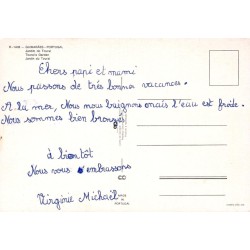 GUIMARÃES - PORTUGAL
Jardim do Toural
Toural's Garden
Jardin du Toural
Chers papi et mami
Nous passons de très bonnes vacances.
A la mer, Nous nous baignons mais l'eau est froide.
Nous sommes bien bronzés
à bientôt
Nous vous embrassons
Virginie Michaël
PORTUGAL